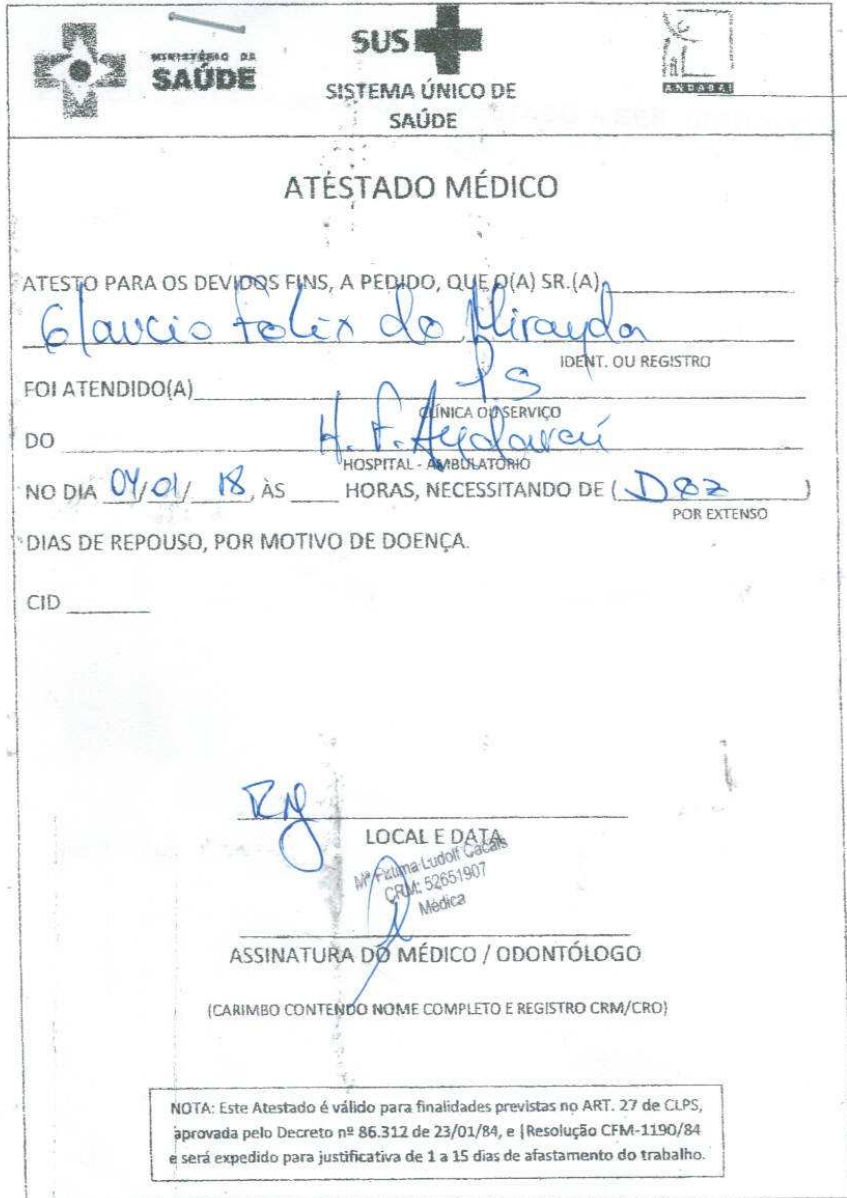 MINISTÉRIO DA
SAÚDE
SUS
SISTEMA ÚNICO DE
SAÚDE
ANDARAÍ
ATESTADO MÉDICO
ATESTO PARA OS DEVIDOS FINS, A PEDIDO, QUE O(A) SR.(A)
Glaucio Felix de Miranda
IDENT. OU REGISTRO
FOI ATENDIDO(A) PS
CLÍNICA OU SERVIÇO
DO H. F. Andaraí
HOSPITAL - AMBULATÓRIO
NO DIA 04/01/18, ÀS ____ HORAS, NECESSITANDO DE (Dez)
POR EXTENSO
DIAS DE REPOUSO, POR MOTIVO DE DOENÇA.
CID ______
RJ
LOCAL E DATA
Mª Fátima Ludolf Cacais
CRM: 52651907
Médica
ASSINATURA DO MÉDICO / ODONTÓLOGO
(CARIMBO CONTENDO NOME COMPLETO E REGISTRO CRM/CRO)
NOTA: Este Atestado é válido para finalidades previstas no ART. 27 de CLPS,
aprovada pelo Decreto nº 86.312 de 23/01/84, e |Resolução CFM-1190/84
e será expedido para justificativa de 1 a 15 dias de afastamento do trabalho.